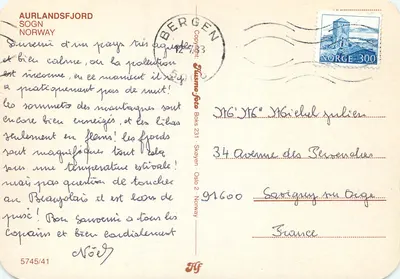 AURLANDSFJORD
SOGN
NORWAY
Souvenir d'un pays très agréable
et bien calme, où la pollution
est inconnue, en ce moment il n'y
a pratiquement pas de nuit!
les sommets des montagnes sont
encore bien enneigés, et les lilas
seulement en fleurs! les fjords
sont magnifiques tout cela
sous une température estivale!
mais pas question de toucher
au Beaujolais il est hors de
prix! Bon souvenir a tous les
copains et bien cordialement
5745/41
BERGEN
83
NORGE 300
Norway
Mr Me Michel Julien
34 Avenue des
91600 Savigny sur Orge
France